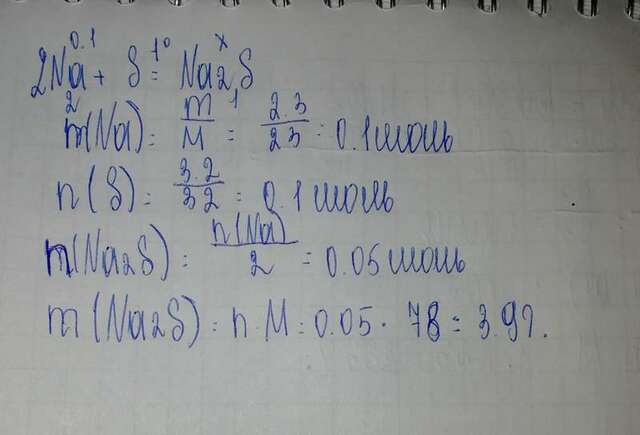 0.1 x
2Na + S =t° Na2S
2 1
n(Na) = m/M = 2.3/23 = 0.1 моль
n(S) = 3.2/32 = 0.1 моль
n(Na2S) = n(Na)/2 = 0.05 моль
m(Na2S) = n·M = 0.05 · 78 = 3.9г.